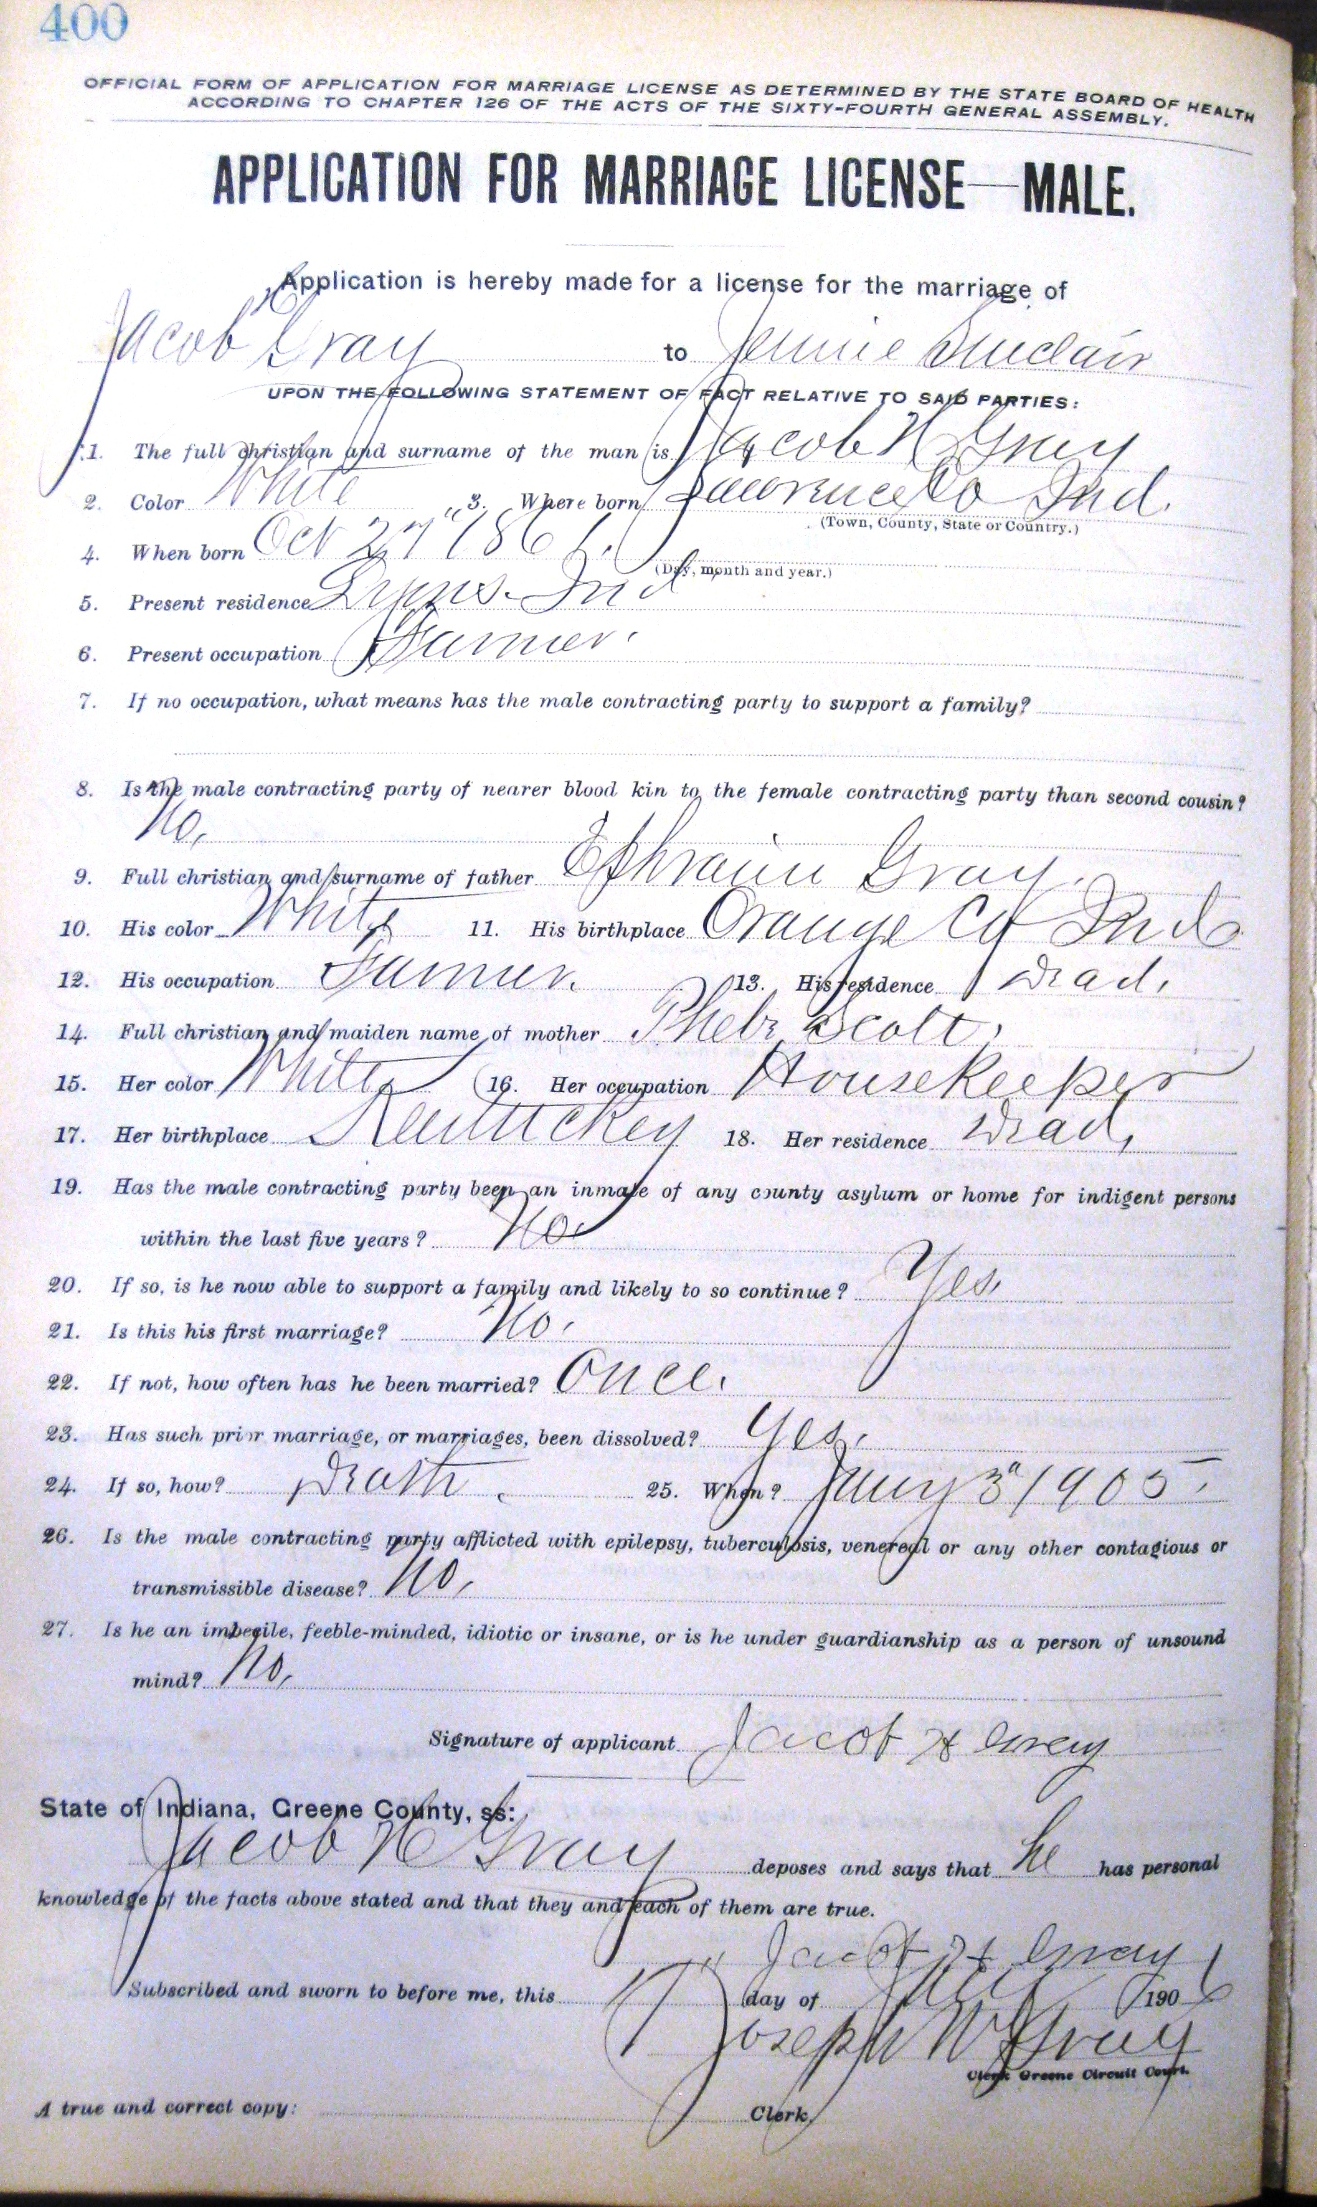 400
OFFICIAL FORM OF APPLICATION FOR MARRIAGE LICENSE AS DETERMINED BY THE STATE BOARD OF HEALTH
ACCORDING TO CHAPTER 126 OF THE ACTS OF THE SIXTY-FOURTH GENERAL ASSEMBLY.
APPLICATION FOR MARRIAGE LICENSE—MALE.
Application is hereby made for a license for the marriage of
Jacob H Gray to Jennie Sinclair
UPON THE FOLLOWING STATEMENT OF FACT RELATIVE TO SAID PARTIES:
1. The full christian and surname of the man is Jacob H Gray
2. Color White 3. Where born Lawrence Co Ind.
(Town, County, State or Country.)
4. When born Oct 27" 1861.
(Day, month and year.)
5. Present residence Lyons. Ind
6. Present occupation Farmer.
7. If no occupation, what means has the male contracting party to support a family?
8. Is the male contracting party of nearer blood kin to the female contracting party than second cousin?
No.
9. Full christian and surname of father Ephraim Gray.
10. His color White 11. His birthplace Orange Co Ind
12. His occupation Farmer. 13. His residence Dead.
14. Full christian and maiden name of mother Phebe Scott.
15. Her color White 16. Her occupation Housekeeper
17. Her birthplace Kentuckey 18. Her residence Dead.
19. Has the male contracting party been an inmate of any county asylum or home for indigent persons
within the last five years? No.
20. If so, is he now able to support a family and likely to so continue? Yes.
21. Is this his first marriage? No.
22. If not, how often has he been married? Once.
23. Has such prior marriage, or marriages, been dissolved? Yes.
24. If so, how? Death. 25. When? Jany 3" 1905.
26. Is the male contracting party afflicted with epilepsy, tuberculosis, venereal or any other contagious or
transmissible disease? No.
27. Is he an imbecile, feeble-minded, idiotic or insane, or is he under guardianship as a person of unsound
mind? No.
Signature of applicant Jacob H Gray
State of Indiana, Greene County, ss:
Jacob H Gray deposes and says that he has personal
knowledge of the facts above stated and that they and each of them are true.
Jacob H Gray
Subscribed and sworn to before me, this 17" day of 1906
Joseph W Gray
Clerk Greene Circuit Court.
A true and correct copy: Clerk